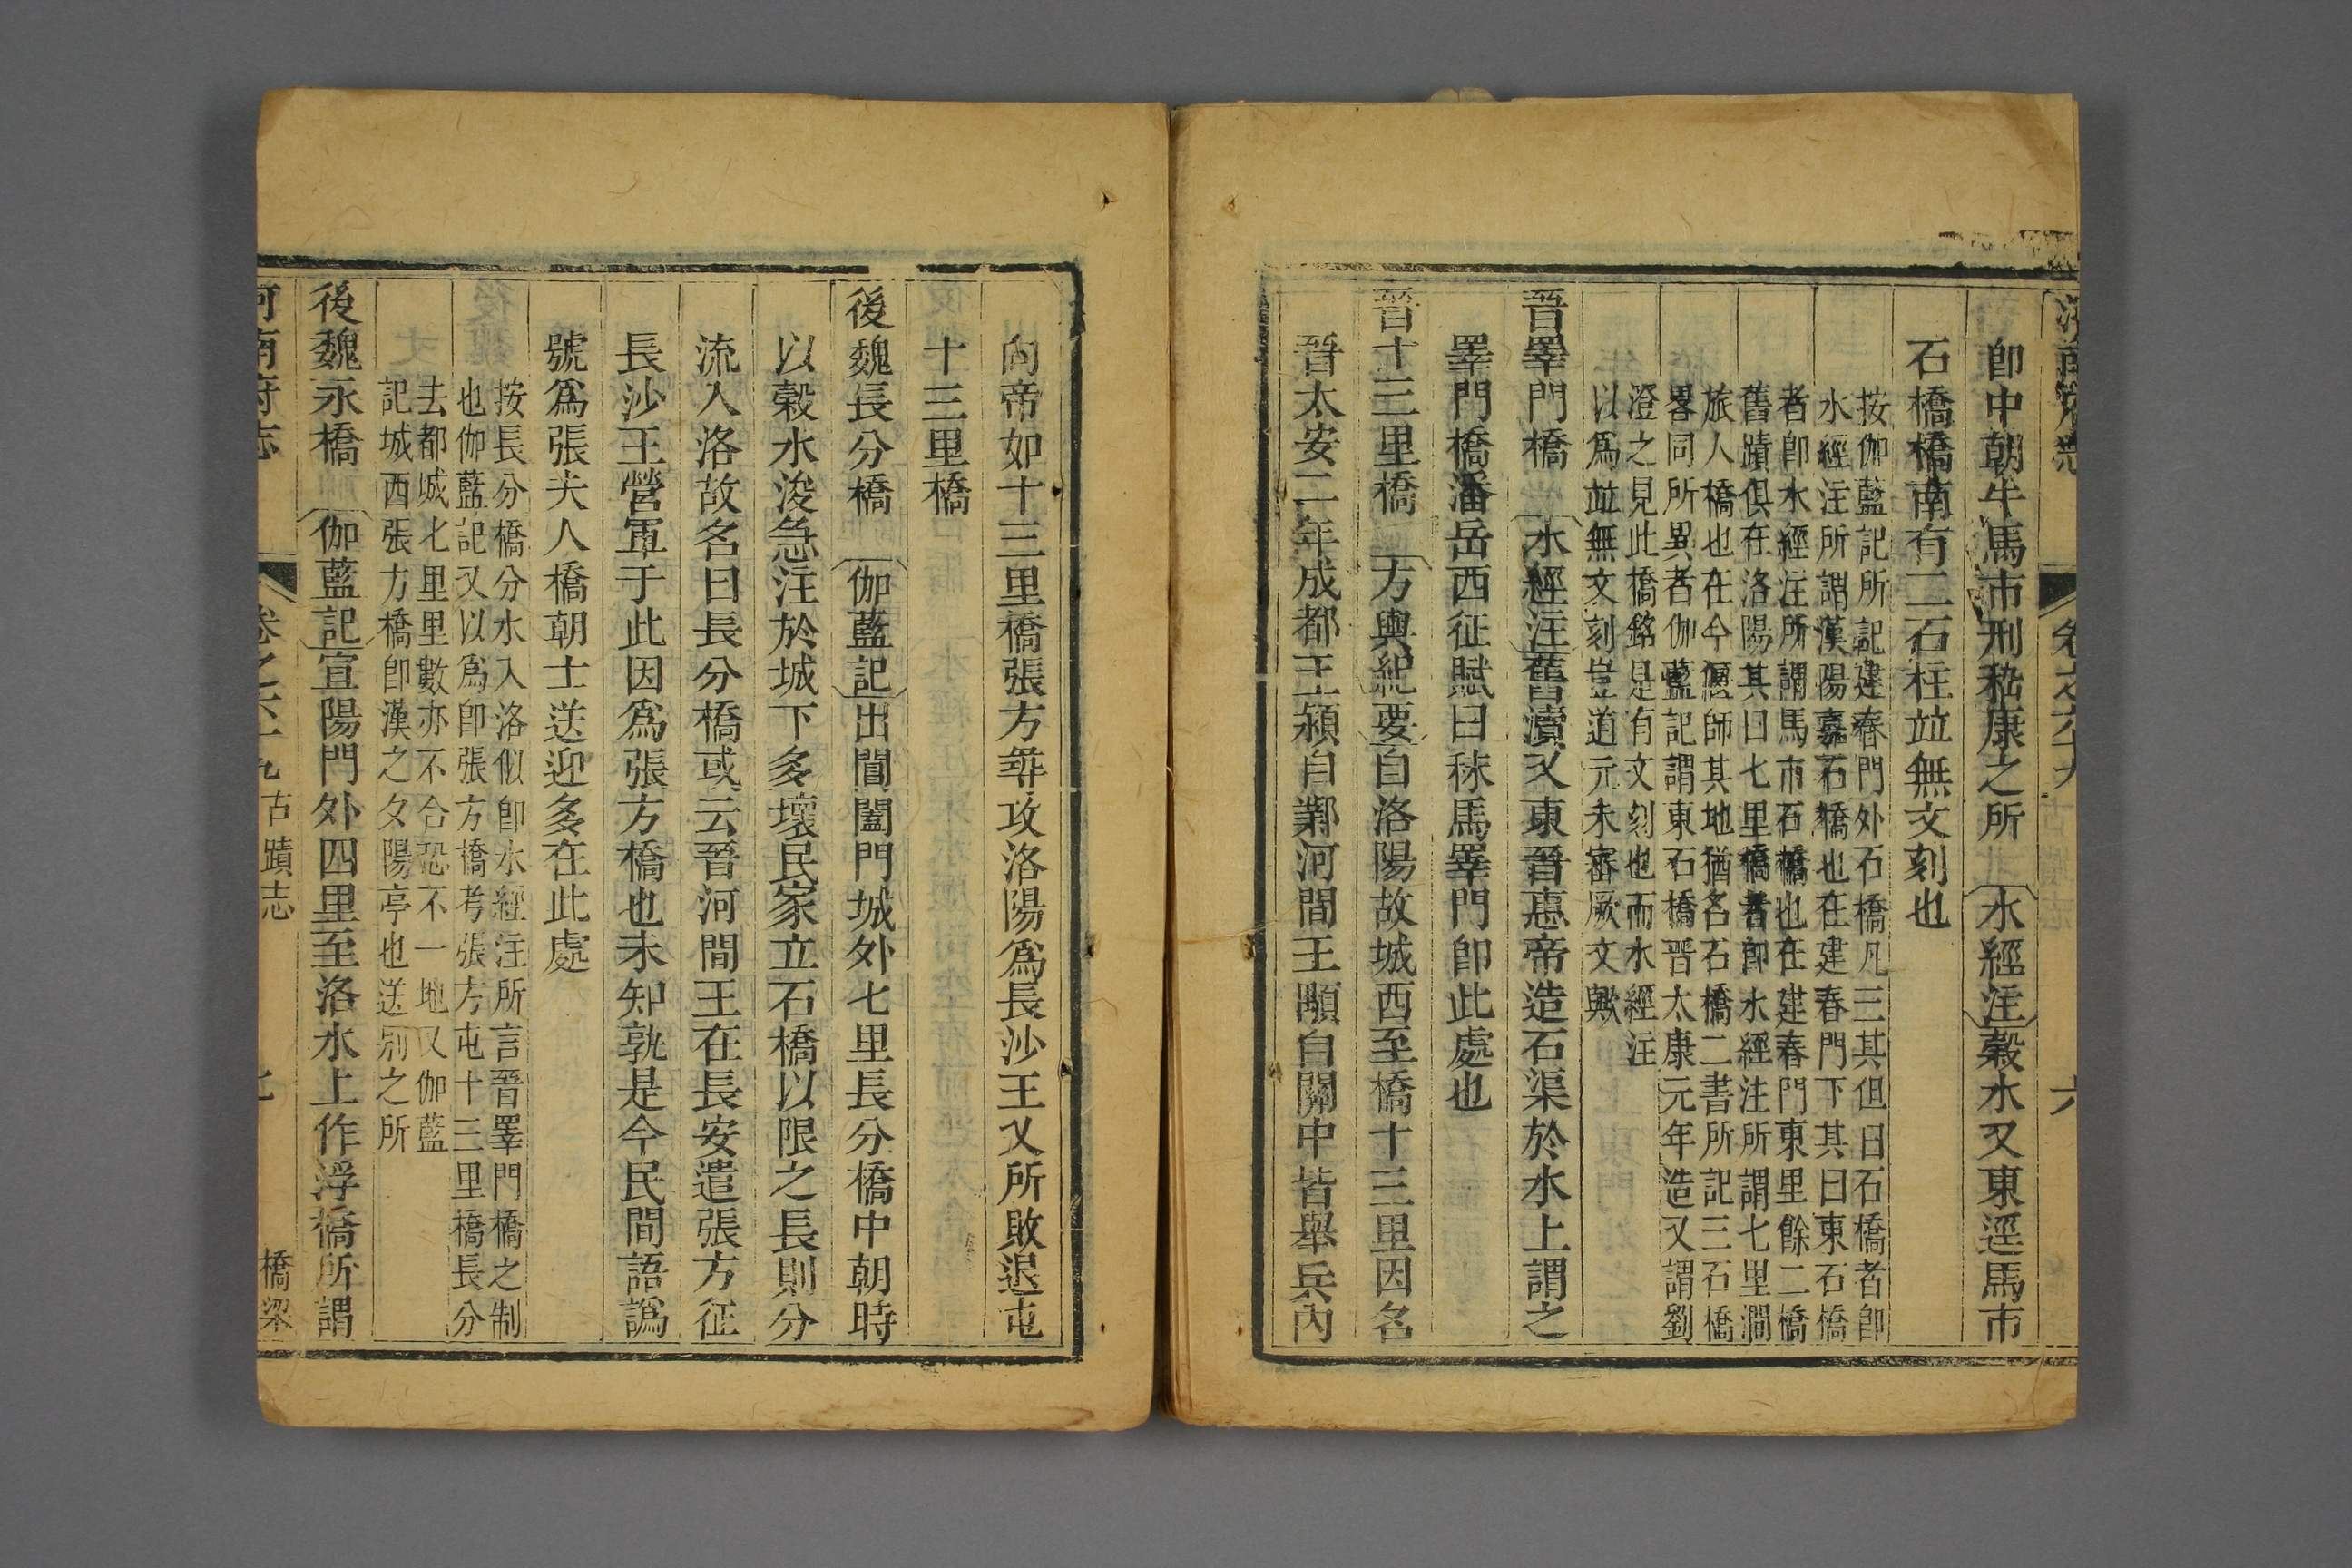 河南府志 卷之六十九 古蹟志 六
卽中朝牛馬市刑嵇康之所 水經注穀水又東逕馬市
石橋橋南有二石柱並無文刻也
按伽藍記所記建春門外石橋凡三其但曰石橋者卽
水經注所謂漢陽嘉石橋也在建春門下其曰東石橋
者卽水經注所謂馬市石橋也在建春門東里餘二橋
舊蹟俱在洛陽其曰七里橋者卽水經注所謂七里澗
旅人橋也在今偃師其地猶名石橋二書所記三石橋
畧同所異者伽藍記謂東石橋晉太康元年造又謂劉
澄之見此橋銘是有文刻也而水經注
以爲並無文刻豈道元未審厥文歟
晉睪門橋 水經注舊瀆又東晉惠帝造石渠於水上謂之
睪門橋潘岳西征賦曰秣馬睪門卽此處也
晉十三里橋 方輿紀要自洛陽故城西至橋十三里因名
晉太安二年成都王潁自鄴河間王顒自關中皆舉兵內
向帝如十三里橋張方等攻洛陽爲長沙王乂所敗退屯
十三里橋
後魏長分橋 伽藍記出閶闔門城外七里長分橋中朝時
以穀水浚急注於城下多壞民家立石橋以限之長則分
流入洛故名曰長分橋或云晉河間王在長安遣張方征
長沙王營軍于此因爲張方橋也未知孰是今民間語譌
號爲張夫人橋朝士送迎多在此處
按長分橋分水入洛似卽水經注所言晉睪門橋之制
也伽藍記又以爲卽張方橋考張方屯十三里橋長分
去都城七里里數亦不合恐不一地又伽藍
記城西張方橋卽漢之夕陽亭也送別之所
後魏永橋 伽藍記宣陽門外四里至洛水上作浮橋所謂
河南府志 卷之六十九 古蹟志 橋梁 七